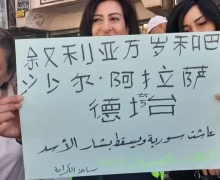 叙利亚万岁和吧
沙尔·阿拉萨
德垮台
عاشت سورية ويسقط بشار الأسد
ساحة الكرامة